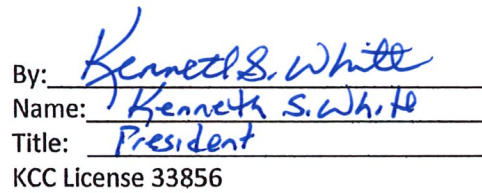 By: Kenneth S. White
Name: Kenneth S. White
Title: President
KCC License 33856